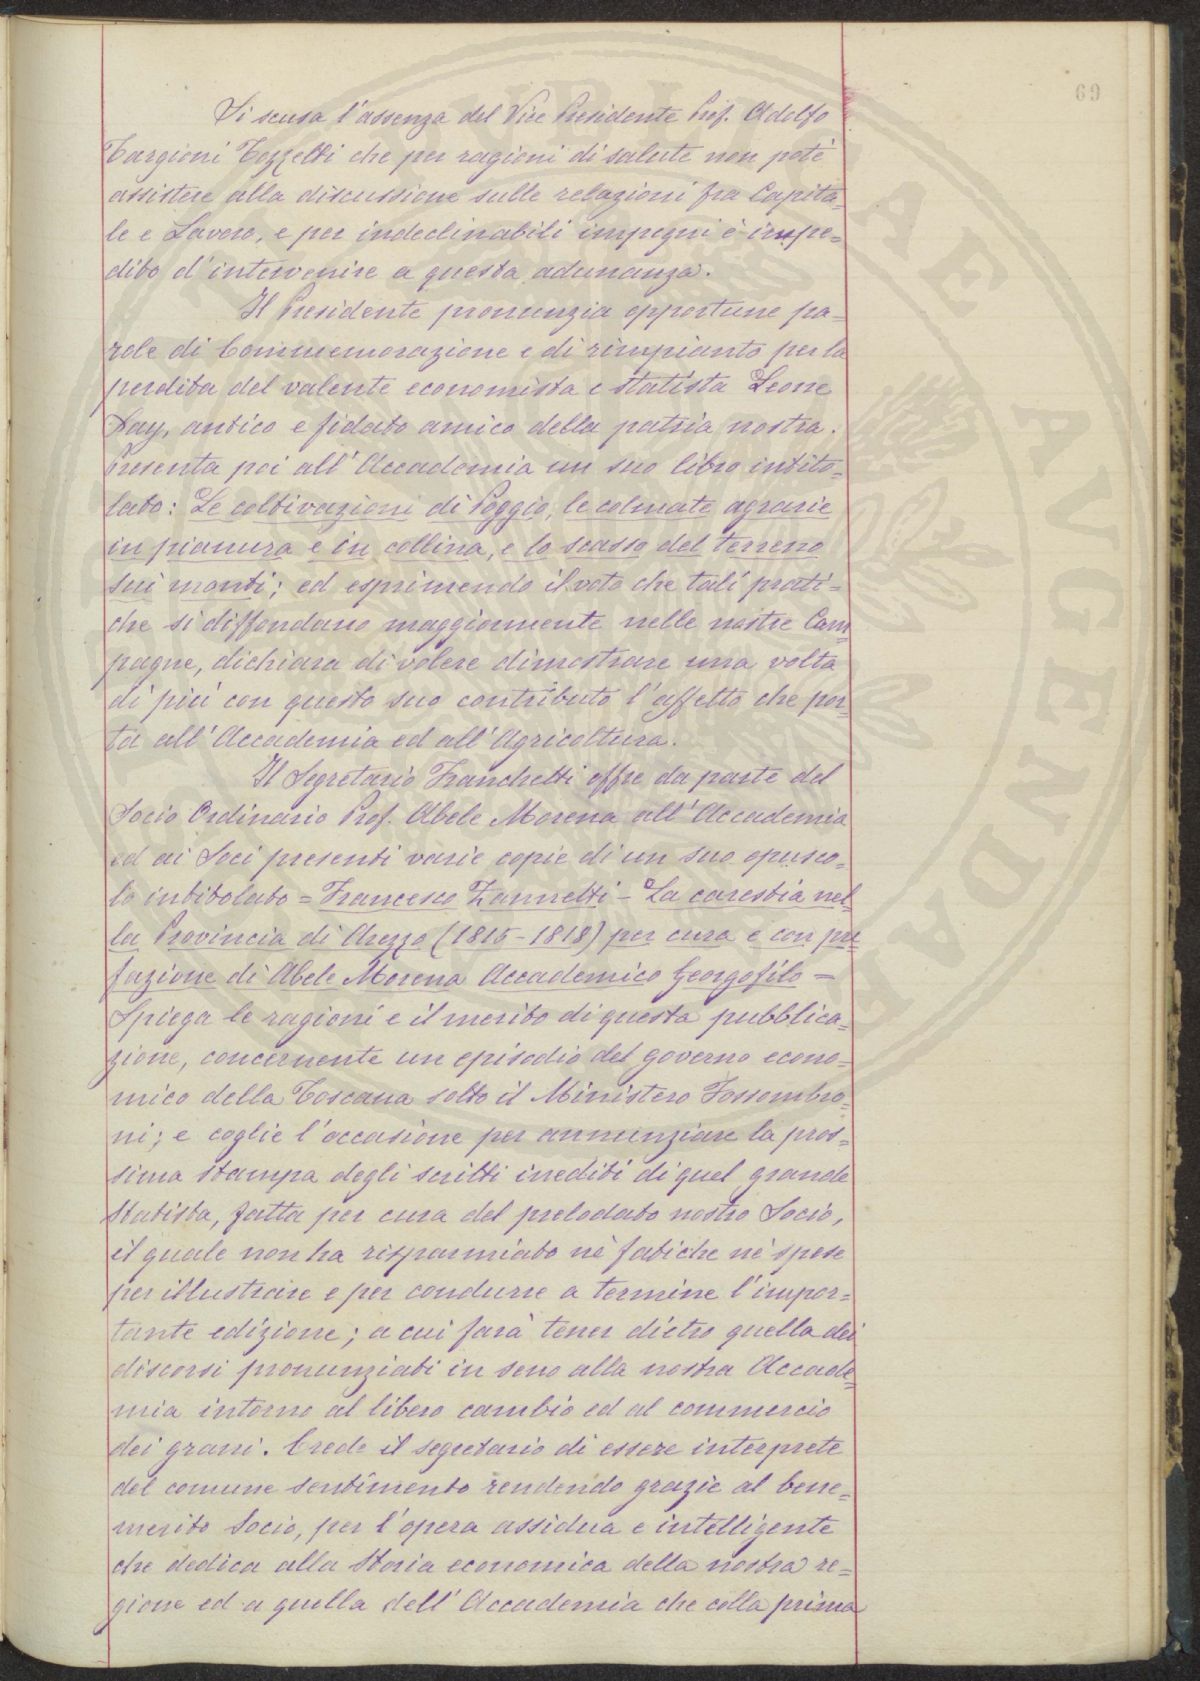 69
Si scusa l'assenza del Vice Presidente Prof. Adolfo
Targioni Tozzetti che per ragioni di salute non potè
assistere alla discussione sulle relazioni fra Capita=
le e Lavoro, e per indeclinabili impegni è impe=
dito d'intervenire a questa adunanza.
Il Presidente pronunzia opportune pa=
role di Commemorazione e di rimpianto per la
perdita del valente economista e statista Leone
Say, antico e fidato amico della patria nostra.
Presenta poi all'Accademia un suo libro intito=
lato: Le coltivazioni di Poggio, le colmate agrarie
in pianura e in collina, e lo scasso del terreno
sui monti; ed esprimendo il voto che tali prati=
che si diffondano maggiormente nelle nostre Cam=
pagne, dichiara di volere dimostrare una volta
di più con questo suo contributo l'affetto che por=
ta all'Accademia ed all'Agricoltura.
Il Segretario Franchetti offre da parte del
Socio Ordinario Prof. Abele Morena all'Accademia
ed ai Soci presenti varie copie di un suo opusco=
lo intitolato = Francesco Zannetti - La carestia nel=
la Provincia di Arezzo (1815-1818) per cura e con pre
fazione di Abele Morena Accademico Georgofilo =
Spiega le ragioni e il merito di questa pubblica=
zione, concernente un episodio del governo econo=
mico della Toscana sotto il Ministero Fossombro=
ni; e coglie l'occasione per annunziare la pros=
sima stampa degli scritti inediti di quel grande
Statista, fatta per cura del prelodato nostro Socio,
il quale non ha risparmiato nè fatiche nè spese
per illustrare e per condurre a termine l'impor=
tante edizione; a cui farà tener dietro quella dei
discorsi pronunziati in seno alla nostra Accade=
mia intorno al libero cambio ed al commercio
dei grani. Crede il segretario di essere interprete
del comune sentimento rendendo grazie al bene=
merito Socio, per l'opera assidua e intelligente
che dedica alla Storia economica della nostra re=
gione ed a quella dell'Accademia che colla prima